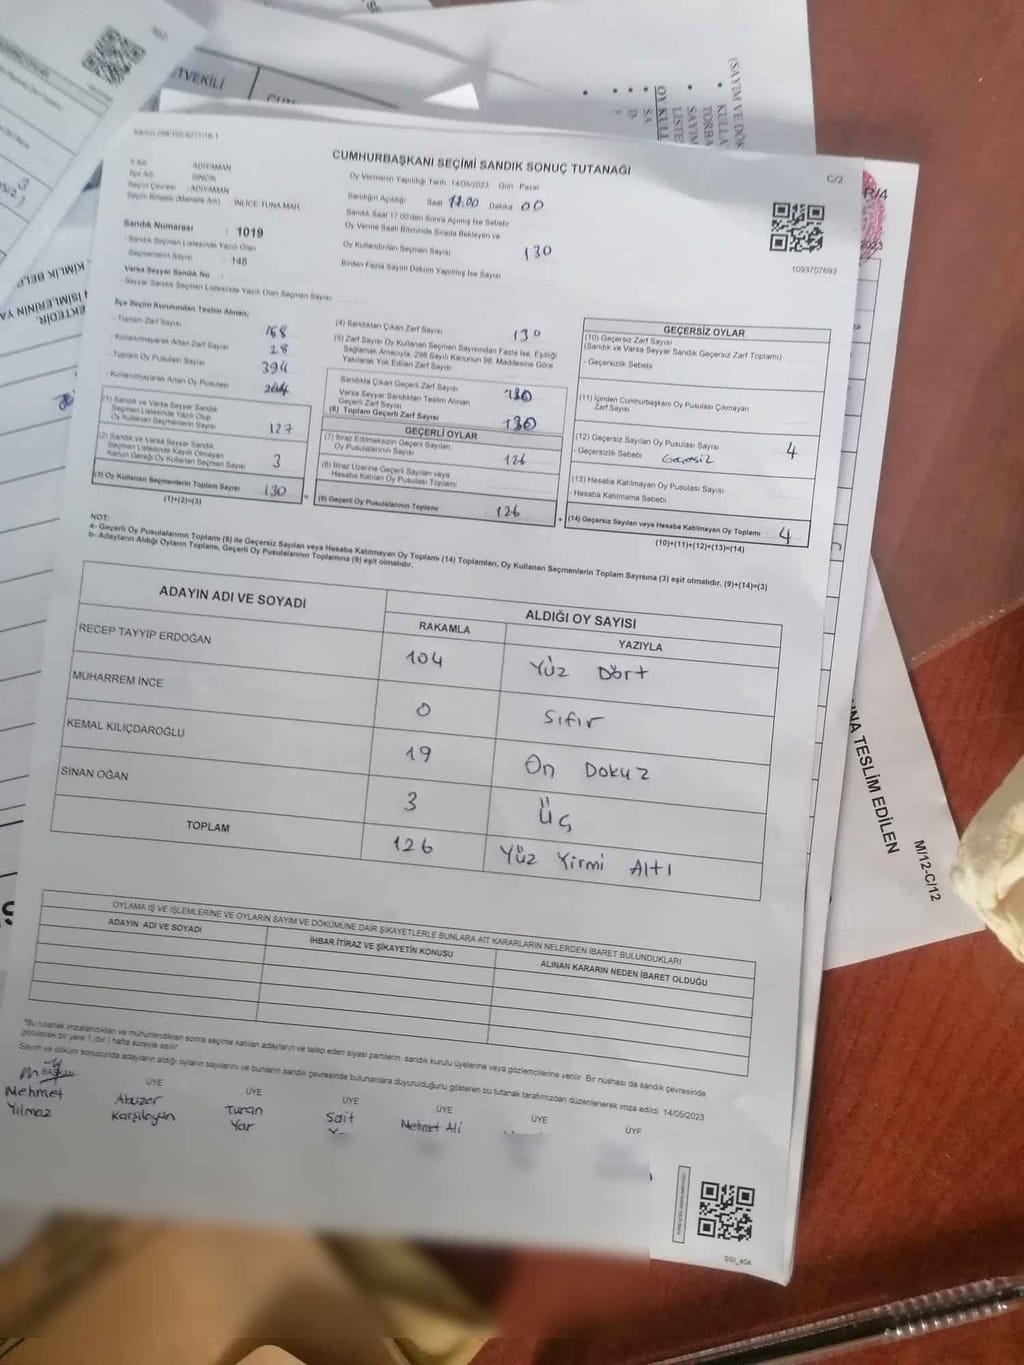 CUMHURBAŞKANI SEÇİMİ SANDIK SONUÇ TUTANAĞI
C/2
İl Adı ADIYAMAN
İlçe Adı SİNCİK
Seçim Çevresi : ADIYAMAN
Seçim Bölgesi (Mahalle Adı) : İNLİCE-TUNA MAH.
Oy Vermenin Yapıldığı Tarih 14/05/2023 Gün Pazar
Sandığın Açıldığı Saat 17.00 Dakika 00
Sandık Saat 17:00'den Sonra Açılmış İse Sebebi
Oy Verme Saati Bitiminde Sırada Bekleyen ve
Oy Kullandırılan Seçmen Sayısı 130
Birden Fazla Sayım Döküm Yapılmış İse Sayısı
1093707693
Sandık Numarası : 1019
- Sandık Seçmen Listesinde Yazılı Olan
Seçmenlerin Sayısı : 148
Varsa Seyyar Sandık No
- Seyyar Sandık Seçmen Listesinde Yazılı Olan Seçmen Sayısı
İlçe Seçim Kurulundan Teslim Alınan;
- Toplam Zarf Sayısı 168
- Kullanılmayarak Artan Zarf Sayısı 28
- Toplam Oy Pusulası Sayısı 394
- Kullanılmayarak Artan Oy Pusulası
(1) Sandık ve Varsa Seyyar Sandık
Seçmen Listesinde Yazılı Olup
Oy Kullanan Seçmenlerin Sayısı 127
(2) Sandık ve Varsa Seyyar Sandık
Seçmen Listesinde Kayıtlı Olmayan
Kanun Gereği Oy Kullanan Seçmen Sayısı 3
(3) Oy Kullanan Seçmenlerin Toplam Sayısı 130
(1)+(2)=(3)
(4) Sandıktan Çıkan Zarf Sayısı 130
(5) Zarf Sayısı Oy Kullanan Seçmen Sayısından Fazla İse, Eşitliği
Sağlamak Amacıyla, 298 Sayılı Kanunun 98. Maddesine Göre
Yakılarak Yok Edilen Zarf Sayısı
Sandıkta Çıkan Geçerli Zarf Sayısı 130
Varsa Seyyar Sandıktan Teslim Alınan
Geçerli Zarf Sayısı
(6) Toplam Geçerli Zarf Sayısı 130
GEÇERLİ OYLAR
(7) İtiraz Edilmeksizin Geçerli Sayılan
Oy Pusulasının Sayısı 126
(8) İtiraz Üzerine Geçerli Sayılan veya
Hesaba Katılan Oy Pusulası Toplamı
(9) Geçerli Oy Pusulalarının Toplamı 126
GEÇERSİZ OYLAR
(10) Geçersiz Zarf Sayısı
(Sandık ve Varsa Seyyar Sandık Geçersiz Zarf Toplamı)
- Geçersizlik Sebebi
(11) İçinden Cumhurbaşkanı Oy Pusulası Çıkmayan
Zarf Sayısı
(12) Geçersiz Sayılan Oy Pusulası Sayısı 4
- Geçersizlik Sebebi
(13) Hesaba Katılmayan Oy Pusulası Sayısı
- Hesaba Katılmama Sebebi
(14) Geçersiz Sayılan veya Hesaba Katılmayan Oy Toplamı 4
(10)+(11)+(12)+(13)=(14)
NOT:
a- Geçerli Oy Pusulalarının Toplamı (9) ile Geçersiz Sayılan veya Hesaba Katılmayan Oy Toplamı (14) Toplamları, Oy Kullanan Seçmenlerin Toplam Sayısına (3) eşit olmalıdır. (9)+(14)=(3)
b- Adayların Aldığı Oyların Toplamı, Geçerli Oy Pusulalarının Toplamına (9) eşit olmalıdır.
ADAYIN ADI VE SOYADI ALDIĞI OY SAYISI
RAKAMLA YAZIYLA
RECEP TAYYİP ERDOĞAN 104 Yüz Dört
MUHARREM İNCE 0 Sıfır
KEMAL KILIÇDAROĞLU 19 On Dokuz
SİNAN OĞAN 3 Üç
TOPLAM 126 Yüz Yirmi Altı
OYLAMA İŞ VE İŞLEMLERİNE VE OYLARIN SAYIM VE DÖKÜMÜNE DAİR ŞİKAYETLERLE BUNLARA AİT KARARLARIN NELERDEN İBARET BULUNDUKLARI
ADAYIN ADI VE SOYADI İHBAR İTİRAZ VE ŞİKAYETİN KONUSU ALINAN KARARIN NEDEN İBARET OLDUĞU
*Bu tutanak imzalandıktan ve mühürlendikten sonra seçime katılan adayların ve talep eden siyasi partilerin sandık kurulu üyelerine veya gözlemcilerine verilir. Bir nüshası da sandık çevresinde
görülecek bir yere 1 (bir) hafta süreyle asılır.
Sayım ve döküm sonucunda adayların aldığı oyların sayılarını ve bunların sandık çevresinde bulunanlara duyurulduğunu gösteren bu tutanak tarafımızdan düzenlenerek imza edildi. 14/05/2023
BAŞKAN ÜYE ÜYE ÜYE ÜYE ÜYE ÜYE
Mehmet Abuzer Turan Sait Mehmet Ali
Yılmaz Karşılayan Yar
SSİ_404
R/4
2023
TVEKİLİ
(SAYIM VE DÖK
NA TESLİM EDİLEN
M/12-C/12